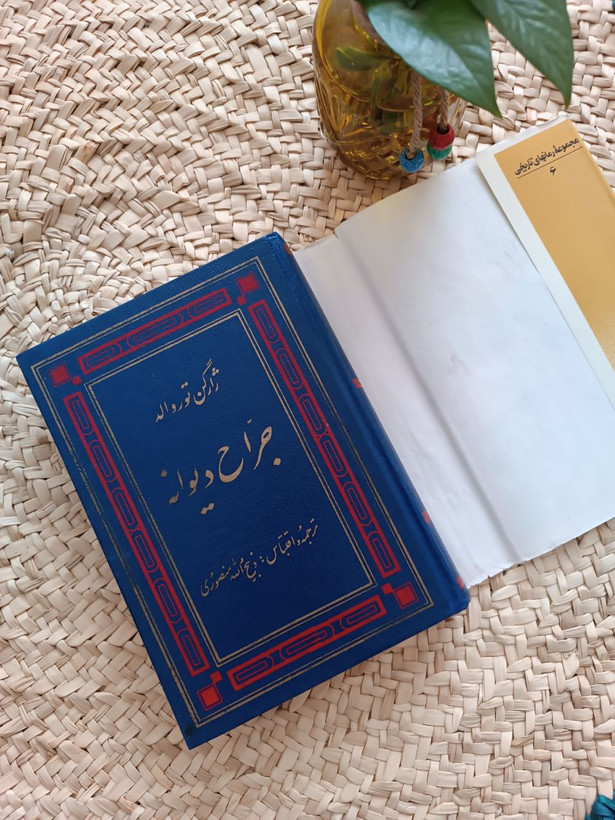 ژارگن توروالد
جراح دیوانه
ترجمه و اقتباس : ذبیح الله منصوری
مجموعهٔ رمانهای تاریخی
۶